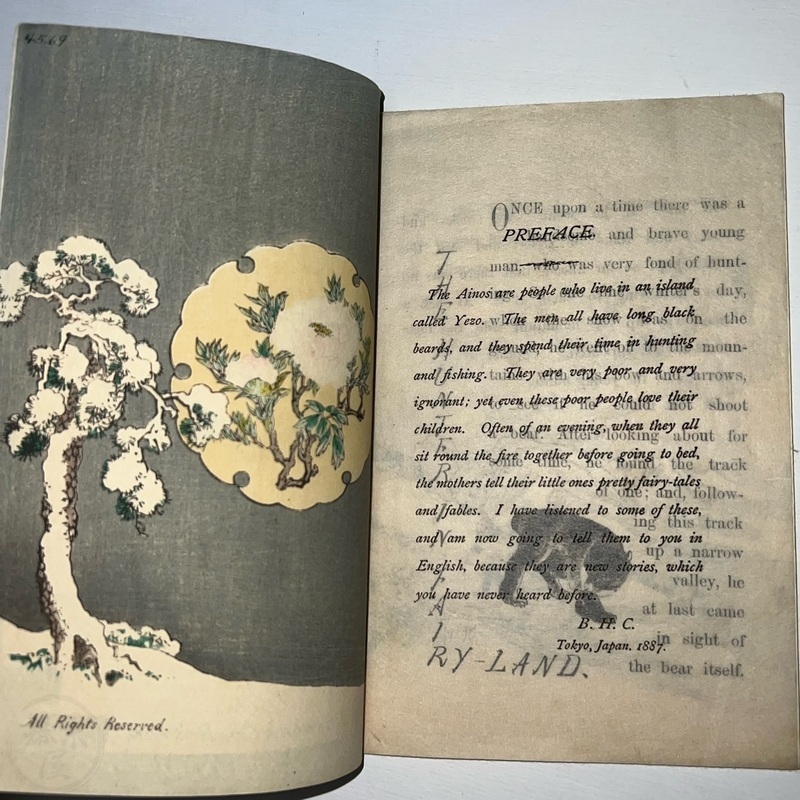 4569
All Rights Reserved.
PREFACE.
The Ainos are people who live in an island
called Yezo. The men all have long black
beards, and they spend their time in hunting
and fishing. They are very poor and very
ignorant; yet even these poor people love their
children. Often of an evening, when they all
sit round the fire together before going to bed,
the mothers tell their little ones pretty fairy-tales
and fables. I have listened to some of these,
and am now going to tell them to you in
English, because they are new stories, which
you have never heard before.
B. H. C.
Tokyo, Japan. 1887.
THE HUNTER IN FAIRY-LAND.
ONCE upon a time there was a
and brave young
man, who was very fond of hunt-
winter's day,
when the snow was on the
he went off to the moun-
tains with his bow and arrows,
to see if he could not shoot
a bear. After looking about for
some time, he found the track
of one; and, follow-
ing this track
up a narrow
valley, he
at last came
in sight of
the bear itself.